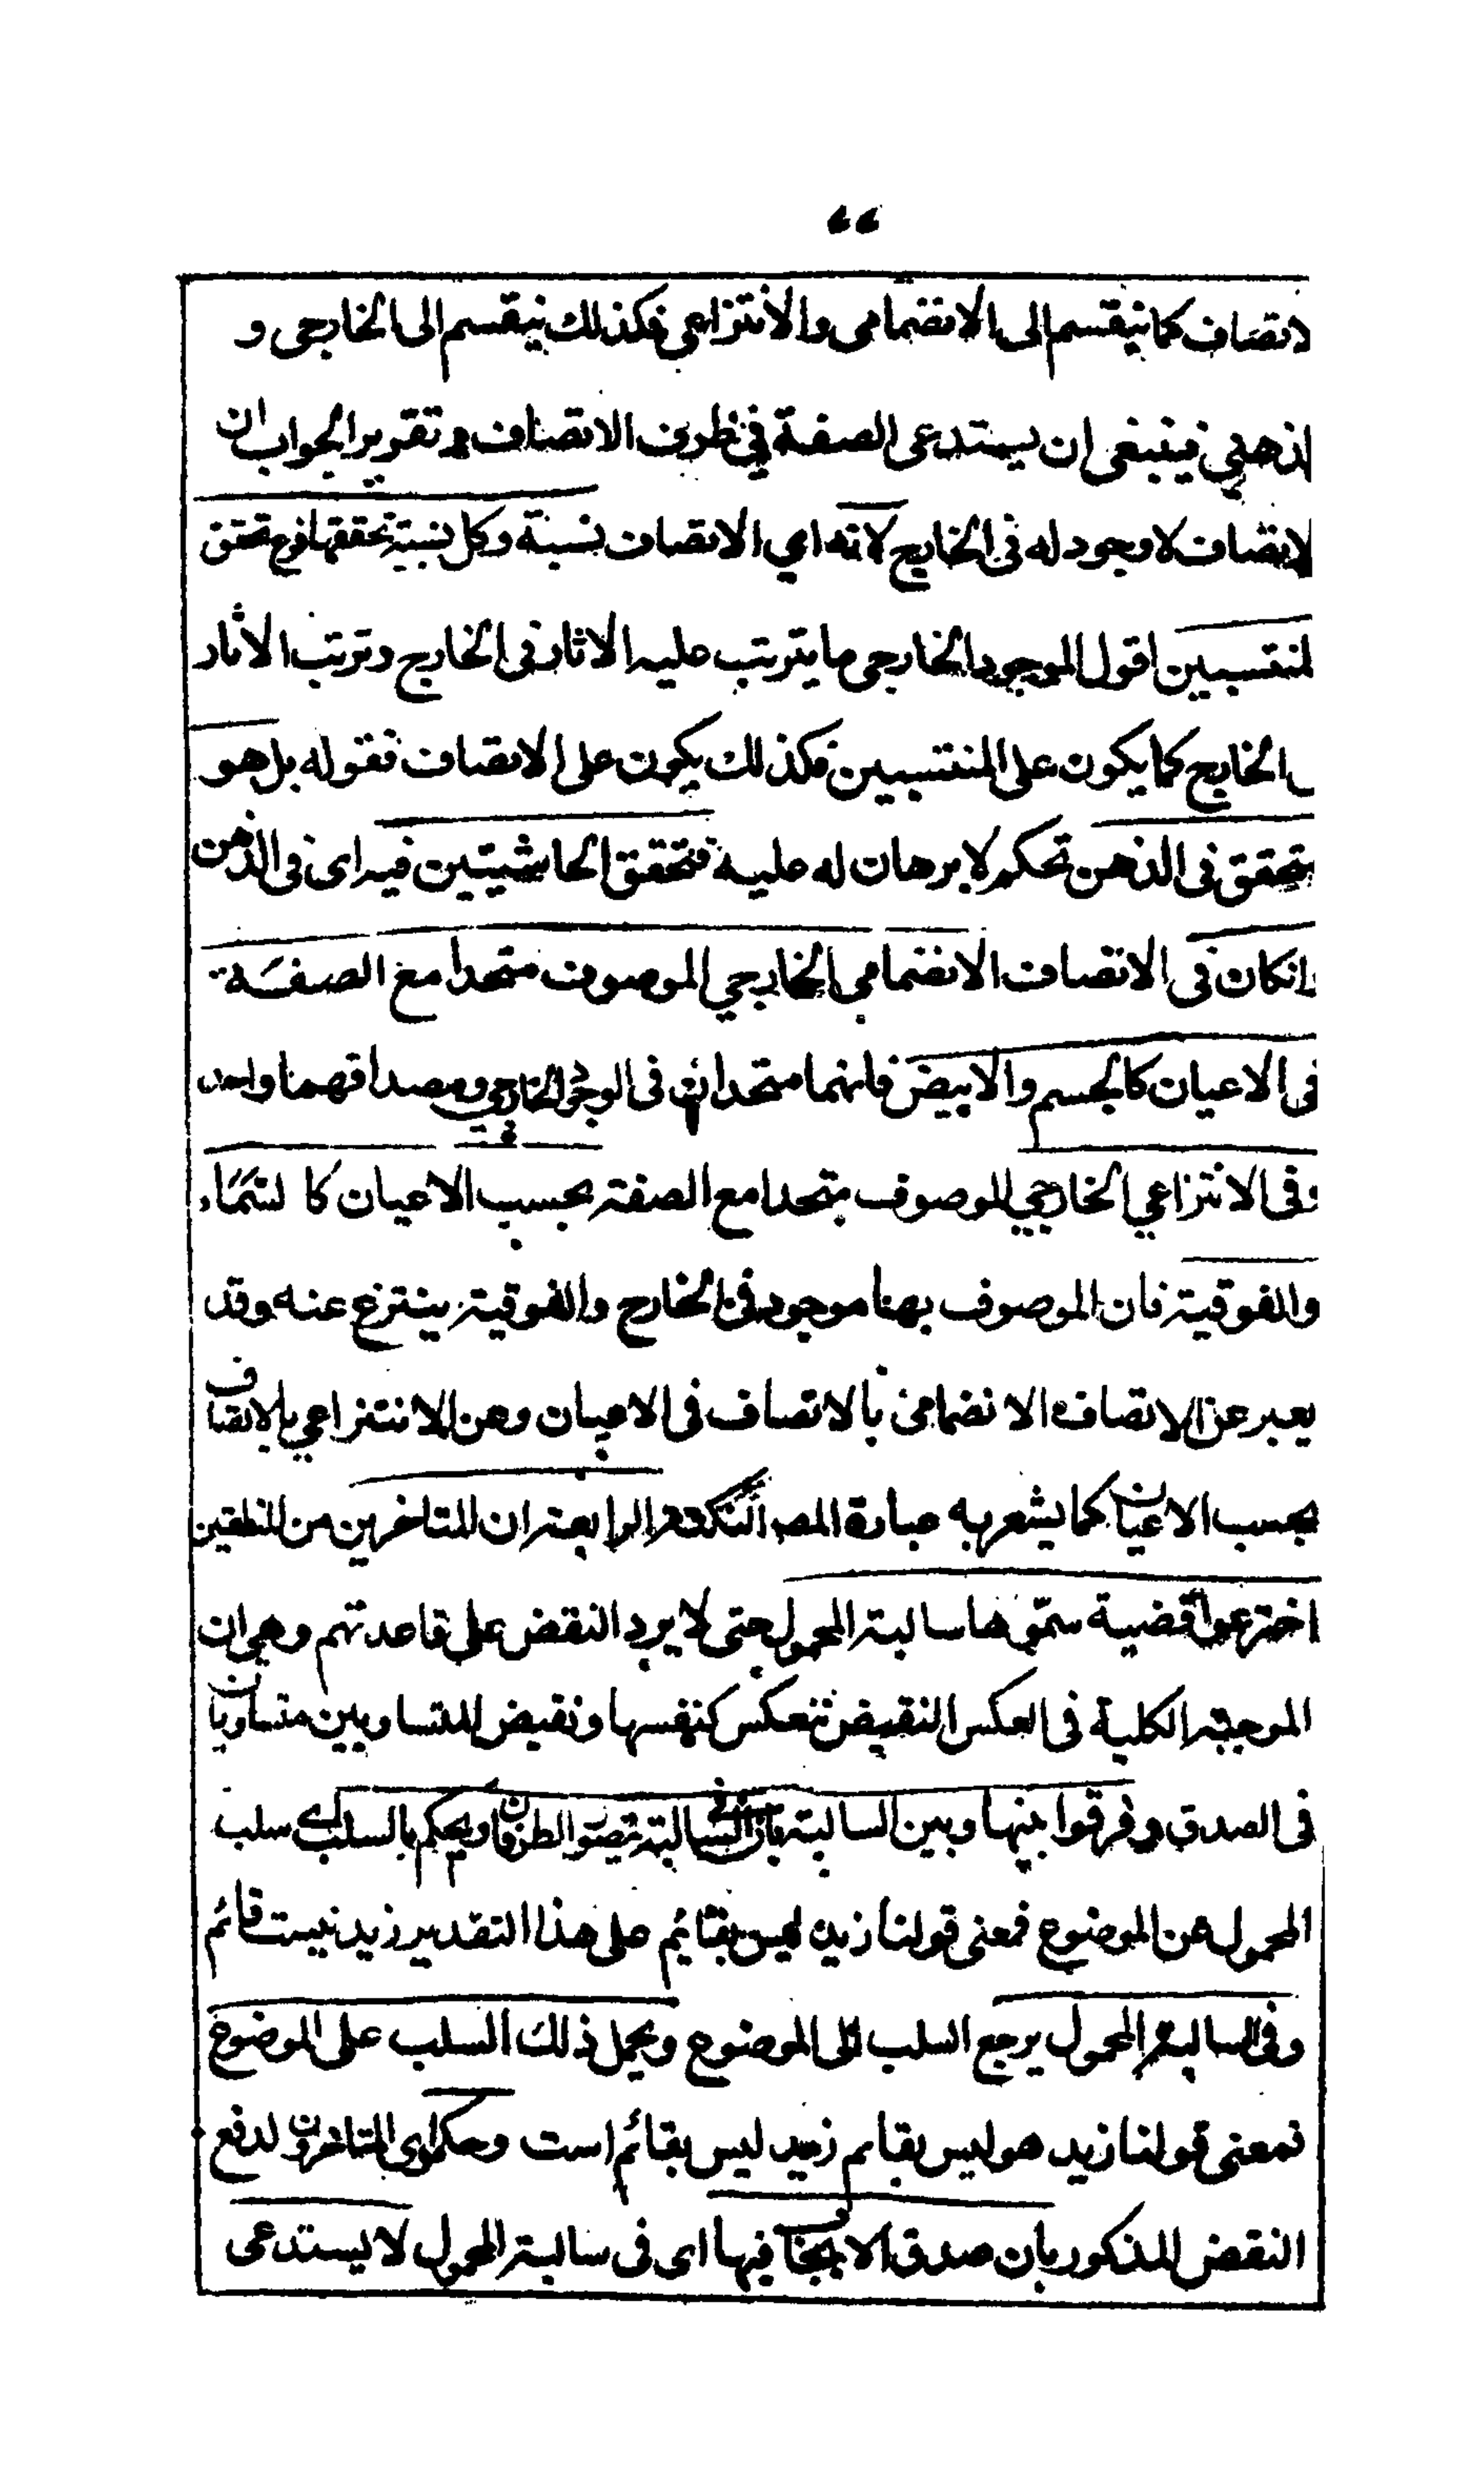 ۶۶
لاتصاف كما ينقسم الى الانضمامى والانتزاعى فكذلك ينقسم الى الخارجى و
الذهنى فينبغى ان يستدعى الصفة فى ظرف الاتصاف وتقرير الجواب ان
لاتصاف لا وجود له فى الخارج لانه اى الاتصاف نسبة وكل نسبة تحققها فرع تحقق
لمنتسبين اقول الموجود الخارجى ما يترتب عليه الاثار فى الخارج وترتب الاثار
الخارج كما يكون على المنتسبين فكذلك يكون على الاتصاف فقوله بل هو
متحقق فى الذهن تحكم لا برهان له عليه فتحقق الحاشيتين فيه اى فى الذهن
وانكان فى الاتصاف الانضمامى الخارجى الموصوف متحدا مع الصفة
فى الاعيان كالجسم والابيض فانهما متحدان فى الوجود الخارجى ومصداقهما واحد
وفى الانتزاعى الخارجى الموصوف متحدا مع الصفة بحسب الاعيان كا لسماء
والفوقية فان الموصوف بهنا موجود فى الخارج والفوقية ينتزع عنه وقد
يعبر عن الاتصاف الانضمامى بالاتصاف فى الاعيان وعن الانتزاعى بالاتصاف
بحسب الاعيان كما يشعر به عبارة المصـ النكتة الرابعة ان المتاخرين من المنطقين
اخترعوا قضية سموها سالبة المحمول حتى لا يرد النقض على قاعدتهم وهى ان
الموجبة الكلية فى العكس النقيض تنعكس كنفسها ونقيض المتساويين متساويان
فى الصدق وفرقوا بينها وبين السالبة بان فى السالبة يتصور الطرفان ويحكم بالسلب اى سلب
المحمول عن الموضوع فمعنى قولنا زيد ليس بقائم على هذا التقدير زيد نيست قائم
وفى السالبة المحمول يرجع السلب الى الموضوع ويحمل ذلك السلب على الموضوع
فمعنى قولنا زيد هو ليس بقايم زيد ليس بقائم است وحكموا اى المتاخرون لدفع
النقض المذكور بان صدق الايجاب فيها اى فى سالبة المحمول لا يستدعى